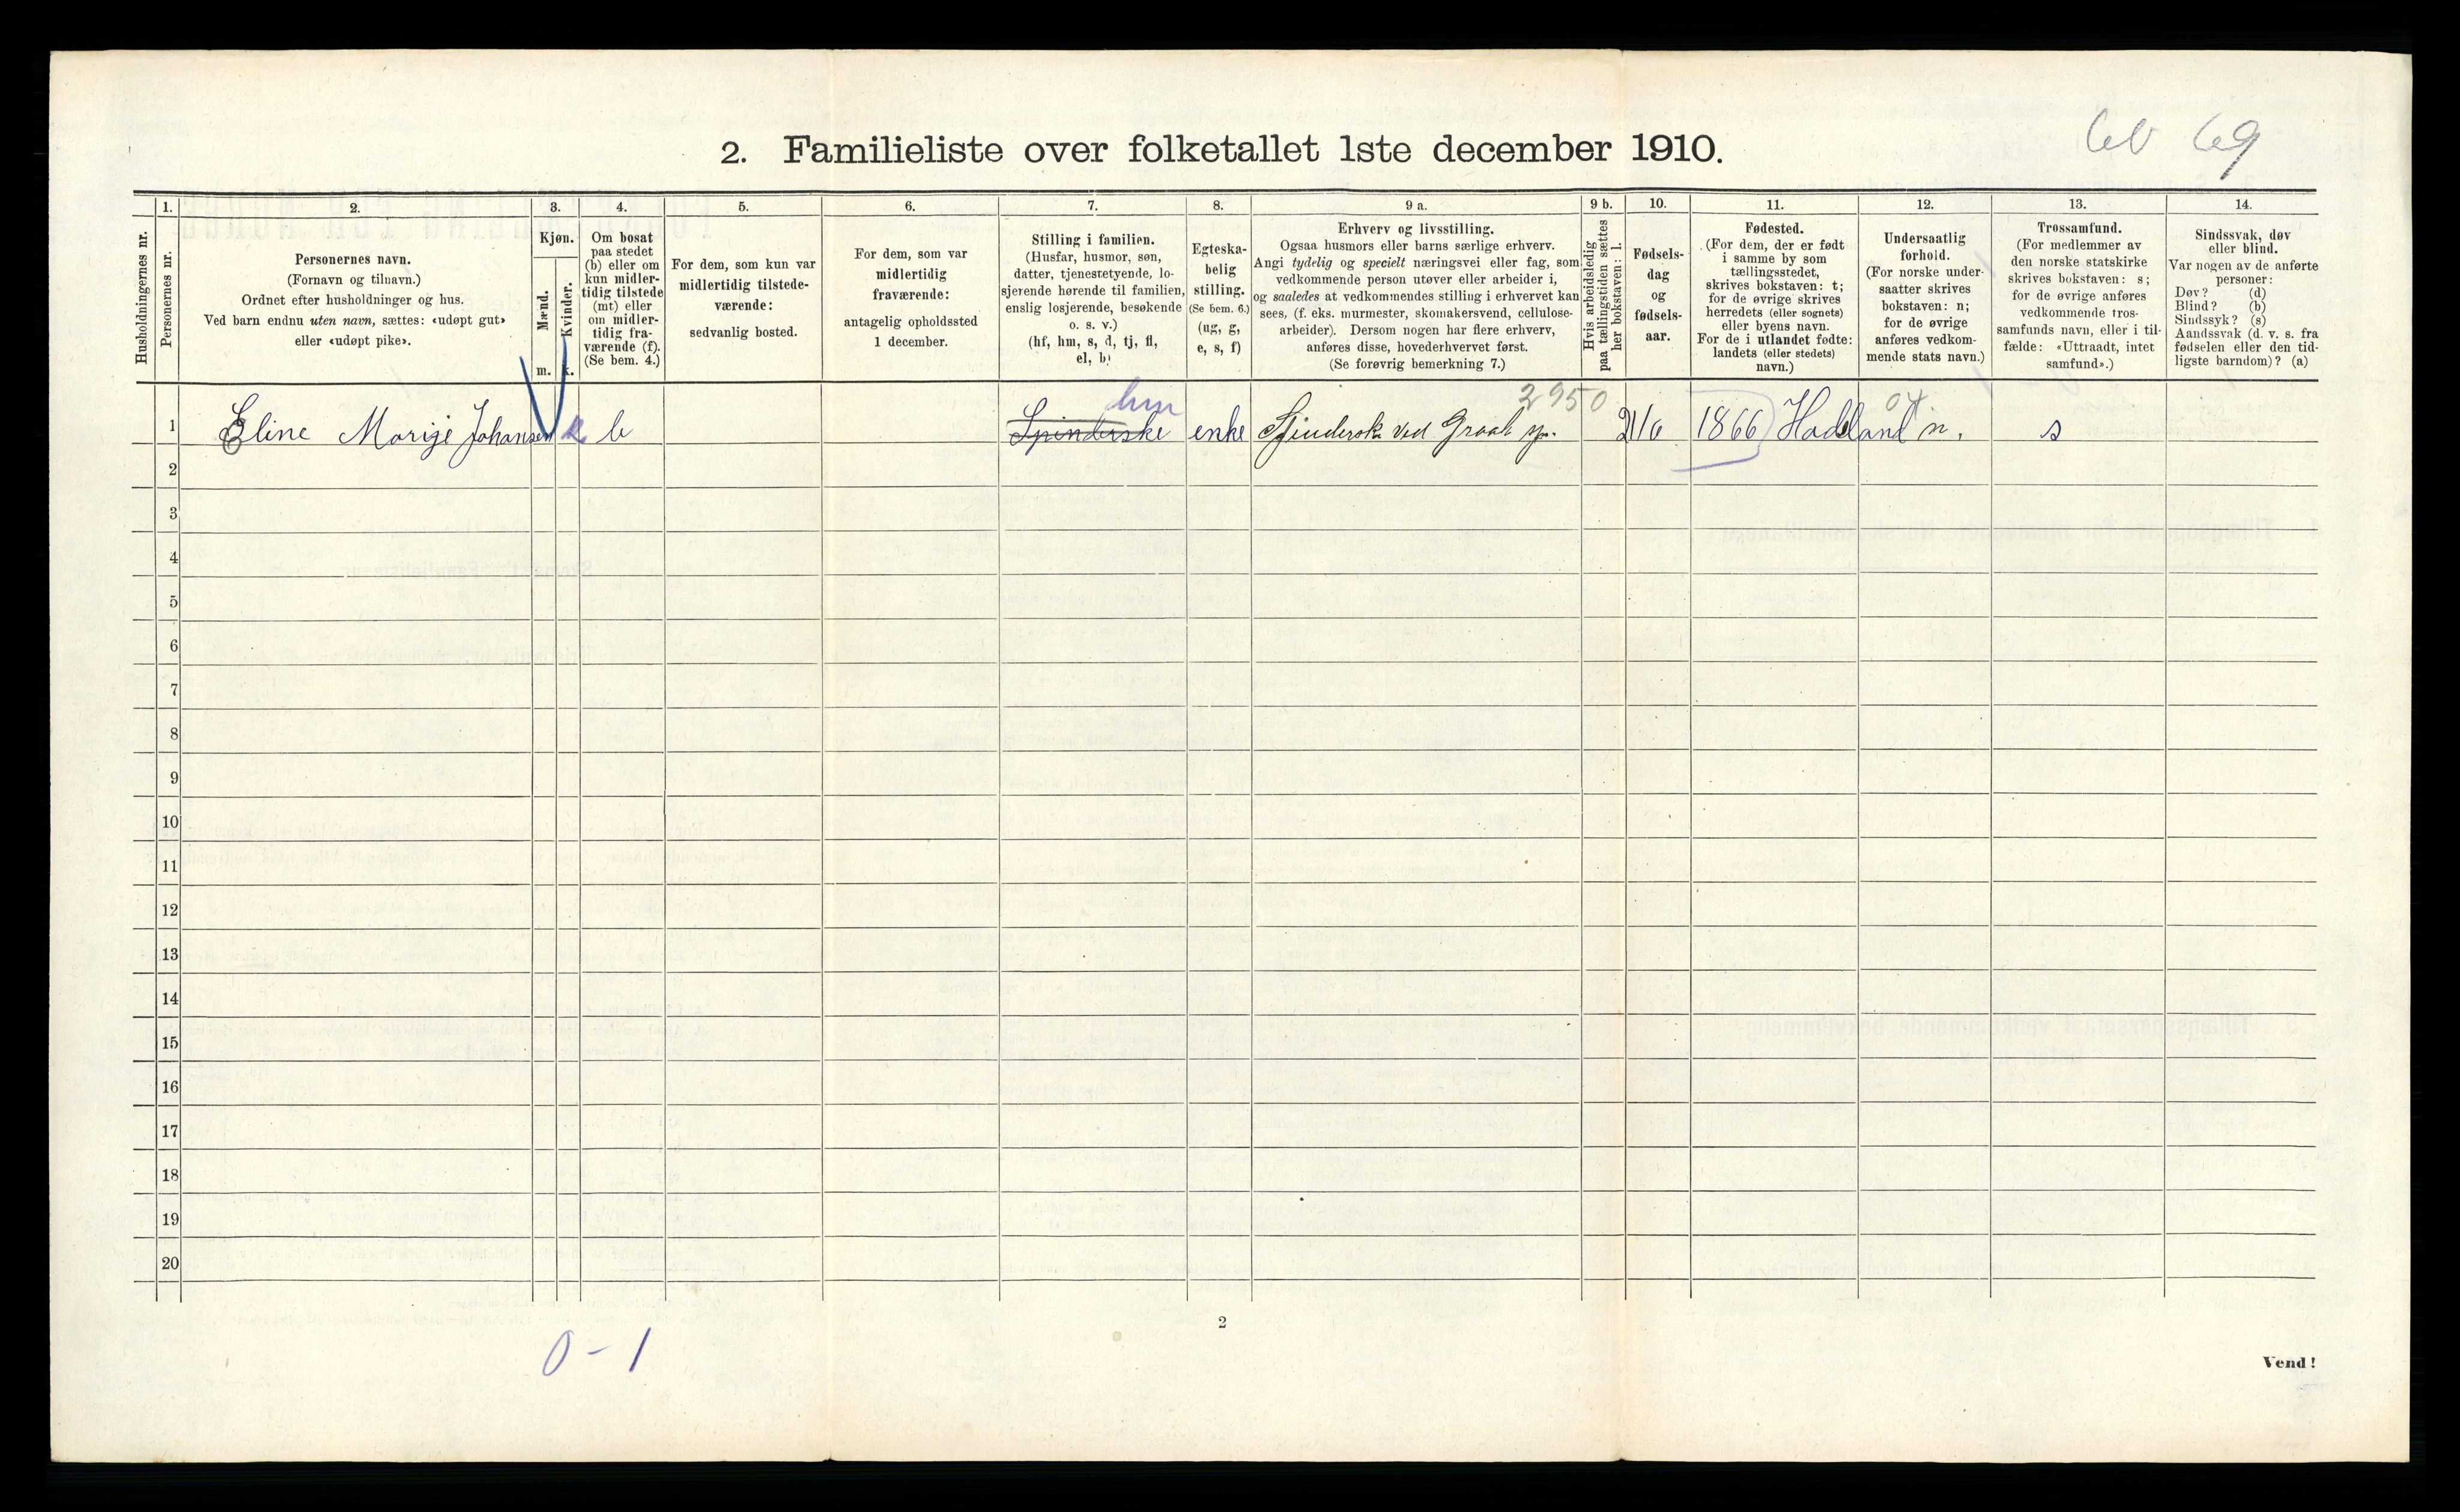 69
2. Familieliste over folketallet 1ste december 1910.
Husholdningernes nr.
1.
Personernes nr.
2.
Personernes navn.
(Fornavn og tilnavn.)
Ordnet efter husholdninger og hus.
Ved barn endnu uten navn, sættes: «udøpt gut»
eller «udøpt pike».
3.
Kjøn.
Mænd.
Kvinder.
m.
k.
4.
Om bosat
paa stedet
(b) eller om
kun midler-
tidig tilstede
(mt) eller
om midler-
tidig fra-
værende (f).
(Se bem. 4.)
5.
For dem, som kun var
midlertidig tilstede-
værende:
sedvanlig bosted.
6.
For dem, som var
midlertidig
fraværende:
antagelig opholdssted
1 december.
7.
Stilling i familien.
(Husfar, husmor, søn,
datter, tjenestetyende, lo-
sjerende hørende til familien,
enslig losjerende, besøkende
o. s. v.)
(hf, hm, s, d, tj, fl,
el, b)
8.
Egteska-
belig
stilling.
(Se bem. 6.)
(ug, g,
e, s, f)
9 a.
Erhverv og livsstilling.
Ogsaa husmors eller barns særlige erhverv.
Angi tydelig og specielt næringsvei eller fag, som
vedkommende person utøver eller arbeider i,
og saaledes at vedkommendes stilling i erhvervet kan
sees, (f. eks. murmester, skomakersvend, cellulose-
arbeider). Dersom nogen har flere erhverv,
anføres disse, hovederhvervet først.
(Se forøvrig bemerkning 7.)
9 b.
Hvis arbeidsledig
paa tællingstiden sættes
her bokstaven: l.
10.
Fødsels-
dag
og
fødsels-
aar.
11.
Fødested.
(For dem, der er født
i samme by som
tællingsstedet,
skrives bokstaven: t;
for de øvrige skrives
herredets (eller sognets)
eller byens navn.
For de i utlandet fødte:
landets (eller stedets)
navn.)
12.
Undersaatlig
forhold.
(For norske under-
saatter skrives
bokstaven: n;
for de øvrige
anføres vedkom-
mende stats navn.)
13.
Trossamfund.
(For medlemmer av
den norske statskirke
skrives bokstaven: s;
for de øvrige anføres
vedkommende tros-
samfunds navn, eller i til-
fælde: «Uttraadt, intet
samfund».)
14.
Sindssvak, døv
eller blind.
Var nogen av de anførte
personer:
Døv? (d)
Blind? (b)
Sindssyk? (s)
Aandssvak (d. v. s. fra
fødselen eller den tid-
ligste barndom)? (a)
hm 2950 04
1 Eline Marije Johansen k b Spinderske enke Spindersk ved Graah sp. 21/6 1866 Hadeland n. s
2
3
4
5
6
7
8
9
10
11
12
13
14
15
16
17
18
19
20
2
0 - 1
Vend!